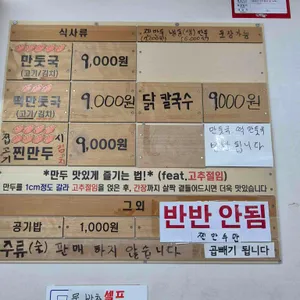 식사류
포장가능
만둣국
(고기/김치)
9,000원
떡만둣국
(고기/김치)
9,000원
닭 칼국수
9,000원
접시
찐만두
(고기/김치)
9,000원
*만두 맛있게 즐기는 법!* (feat.고추절임)
만두를 1cm정도 갈라 고추절임을 얹은 후, 간장까지 살짝 곁들여드시면 더욱 맛있습니다
그외
공기밥
1,000원
반반 안됨
찐만두만
곱빼기 됩니다
주류(술) 판매 하지 않습니다
셀프